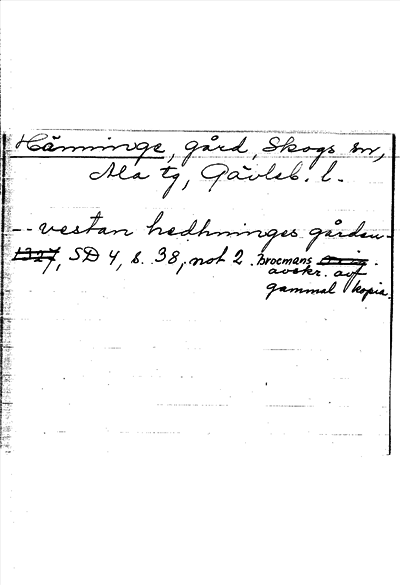 Hänninge, gård, Skogs sn,
Ala tg, Gävleb. l.
-- vestan hedhninges gården -
1327, SD 4, s. 38, not 2. Broemans orig.
avskr. av
gammal kopia.